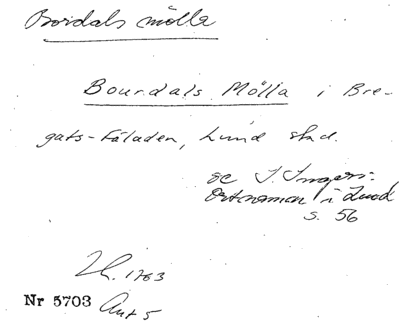 Bordals mölla
Bourdals Mölla i Bre-
gats-Fäladen, Lund stad.
se I. Ingers:
Ortnamn i Lund
s. 56
1763
Nr 5703